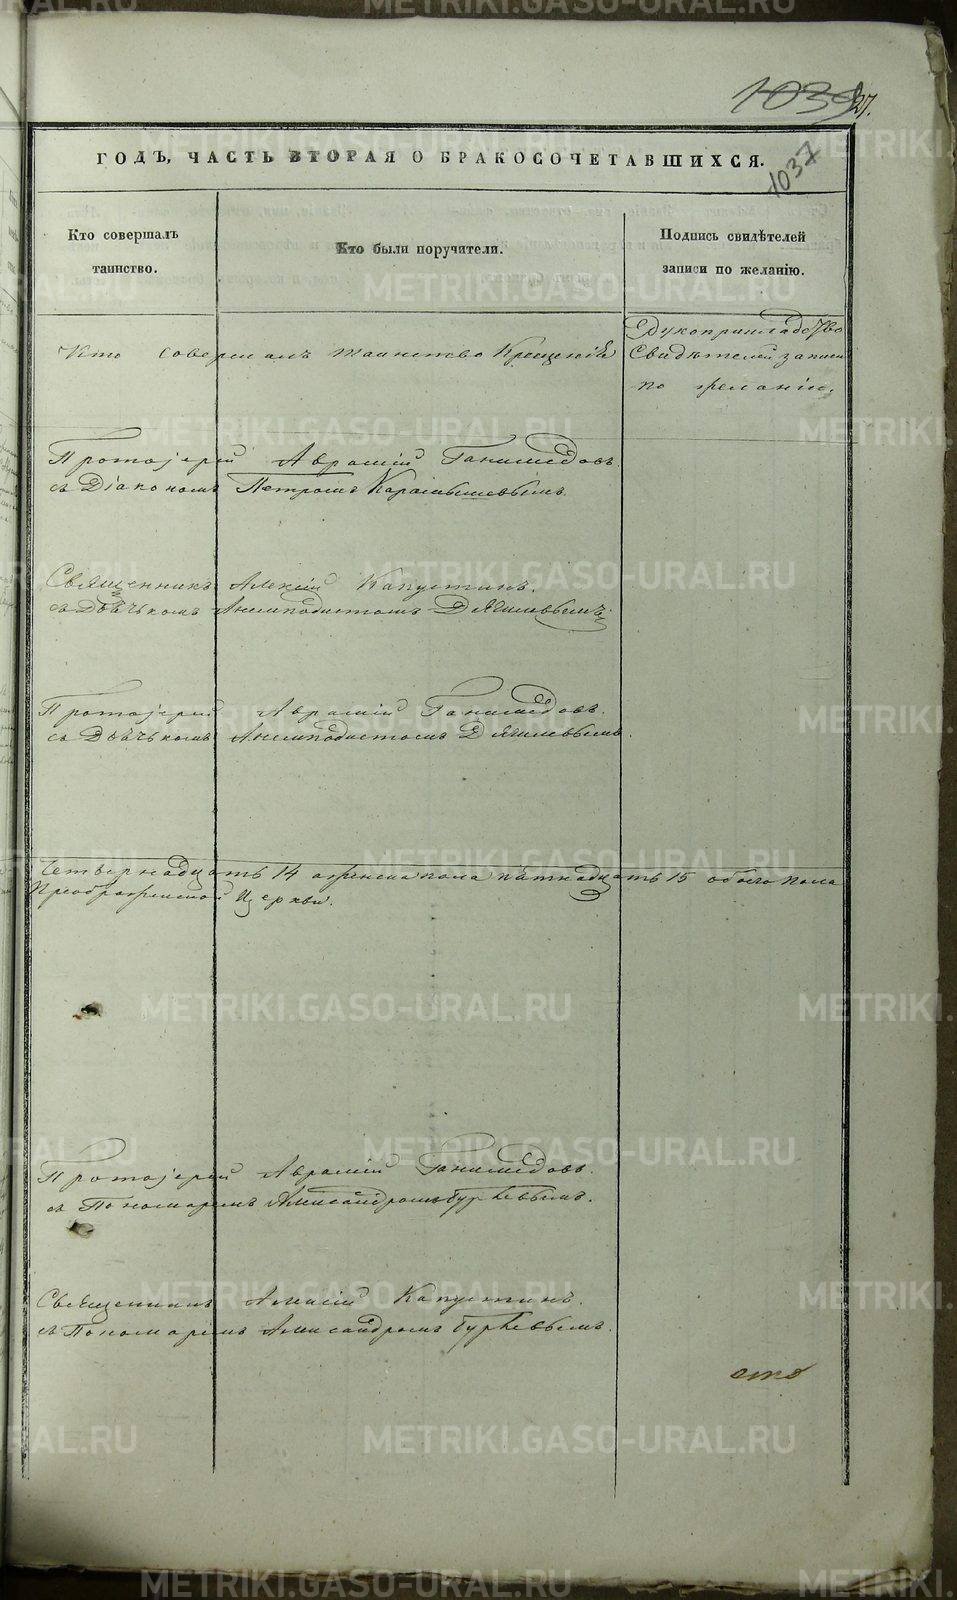 1039
27.
1037
ГОДЪ, ЧАСТЬ ВТОРАЯ О БРАКОСОЧЕТАВШИХСЯ.
Кто совершалъ
таинство.
Кто были поручители.
Подпись свидѣтелей
записи по желанію.
Кто совершалъ таинство Крещенія
Рукоприкладство
Свидѣтелей записи
по желанію.
Протоіерей Аврамій Ганимедовъ.
съ Діакономъ Петромъ Карамышевымъ.
Священникъ Алексій Капустинъ.
съ Дьячькомъ Анемподистомъ Дягилевымъ.
Протоіерей Аврамій Ганимедовъ.
съ Дьячькомъ Анемподистомъ Дягилевымъ.
Четвернадцать 14 женска пола пятнадцать 15 обоего пола
Преображенской Церкви.
Протоіерей Аврамій Ганимедовъ.
съ Пономаремъ Александромъ
Священникъ Алексій Капустинъ.
съ Пономаремъ Александромъ
METRIKI.GASO-URAL.RU